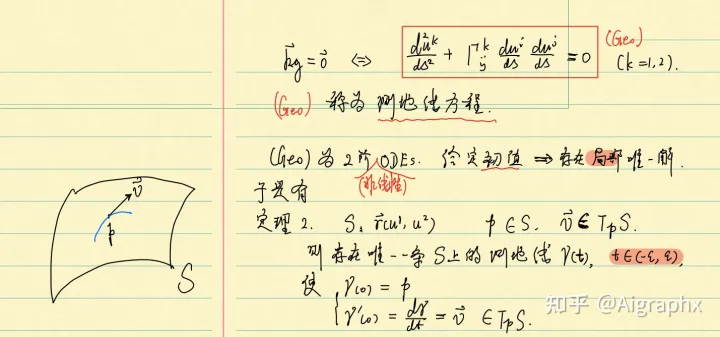 k⃗g = 0⃗ ⇔ d²uᵏ/ds² + Γᵏᵢⱼ duⁱ/ds duʲ/ds = 0 (Geo) (k=1,2).
(Geo) 称为 测地线方程.
(Geo) 为 2阶 ODEs. 给定初值 ⇒ 存在 局部 唯一解.
(非线性)
于是有
定理 2. S: r⃗(u¹, u²) p ∈ S. v⃗ ∈ TpS.
则 存在 唯一一条 S上的 测地线 γ(t), t∈(-ε, ε),
使 { γ(0) = p
γ'(0) = dγ/dt = v⃗ ∈ TpS.
v⃗
p
S
知乎 @Aigraphx